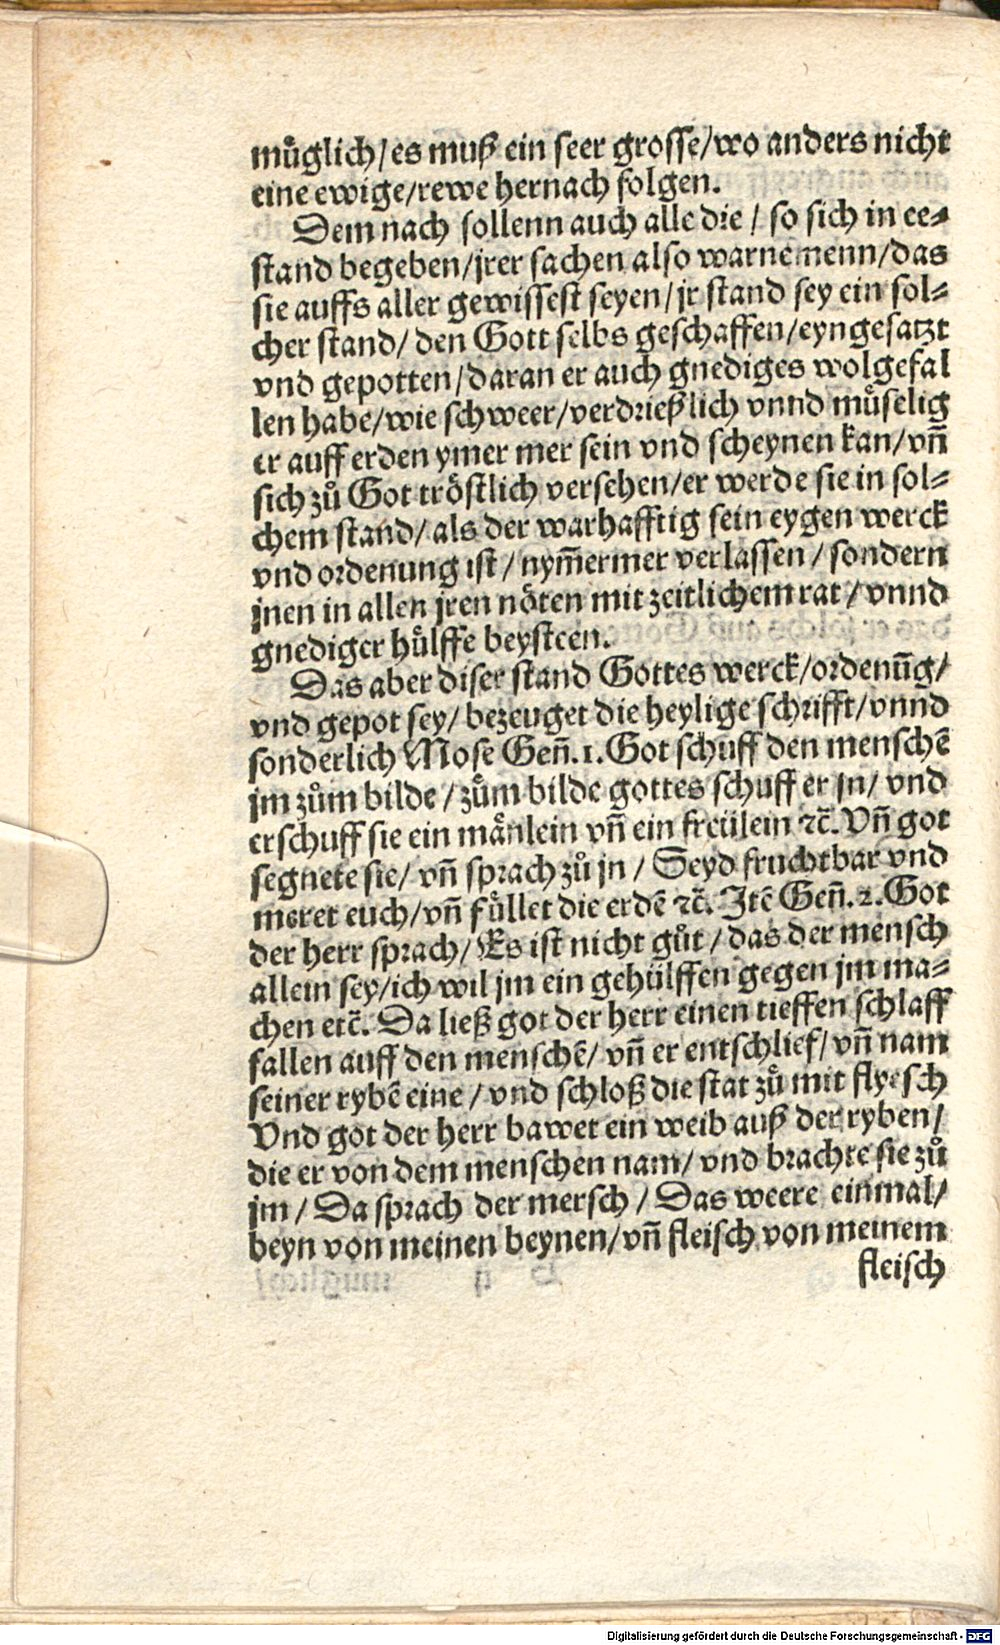 muͤglich/ es muß ein seer grosse/ wo anders nicht
eine ewige/ rewe hernach folgen.
Dem nach sollenn auch alle die / so sich in ee⸗
stand begeben/ jrer sachen also warnemenn/ das
sie auffs aller gewissest seyen/ jr stand sey ein sol⸗
cher stand/ den Gott selbs geschaffen/ eyngesatzt
vnd gepotten/ daran er auch gnediges wolgefal
len habe/ wie schweer/ verdrießlich vnnd muͤselig
er auff erden ymer mer sein vnd scheynen kan/ vñ
sich zuͦ Got troͤstlich versehen/ er werde sie in sol⸗
chem stand/ als der warhafftig sein eygen werck
vnd ordenung ist / nym̃ermer verlassen / sondern
jnen in allen jren noͤten mit zeitlichem rat / vnnd
gnediger huͤlffe beysteen.
Das aber diser stand Gottes werck/ ordenũg/
vnd gepot sey/ bezeuget die heylige schrifft/ vnnd
sonderlich Mose Geñ. 1. Got schuff den menschẽ
jm zuͦm bilde / zuͦm bilde gottes schuff er jn/ vnd
erschuff sie ein maͤnlein vñ ein freülein ꝛc̃. Vñ got
segnete sie/ vñ sprach zuͦ jn / Seyd fruchtbar vnd
meret euch/ vñ fuͤllet die erdẽ ꝛc̃. Itẽ Geñ. 2. Got
der herr sprach/ Es ist nicht guͦt / das der mensch
allein sey/ ich wil jm ein gehülffen gegen jm ma⸗
chen etc̃. Da ließ got der herr einen tieffen schlaff
fallen auff den menschẽ/ vñ er entschlief/ vñ nam
seiner rybẽ eine / vnd schloß die stat zuͦ mit flyesch
Vnd got der herr bawet ein weib auß der ryben/
die er von dem menschen nam/ vnd brachte sie zuͦ
jm / Da sprach der mersch / Das weere einmal/
beyn von meinen beynen/ vñ fleisch von meinem
fleisch
Digitalisierung gefördert durch die Deutsche Forschungsgemeinschaft - DFG